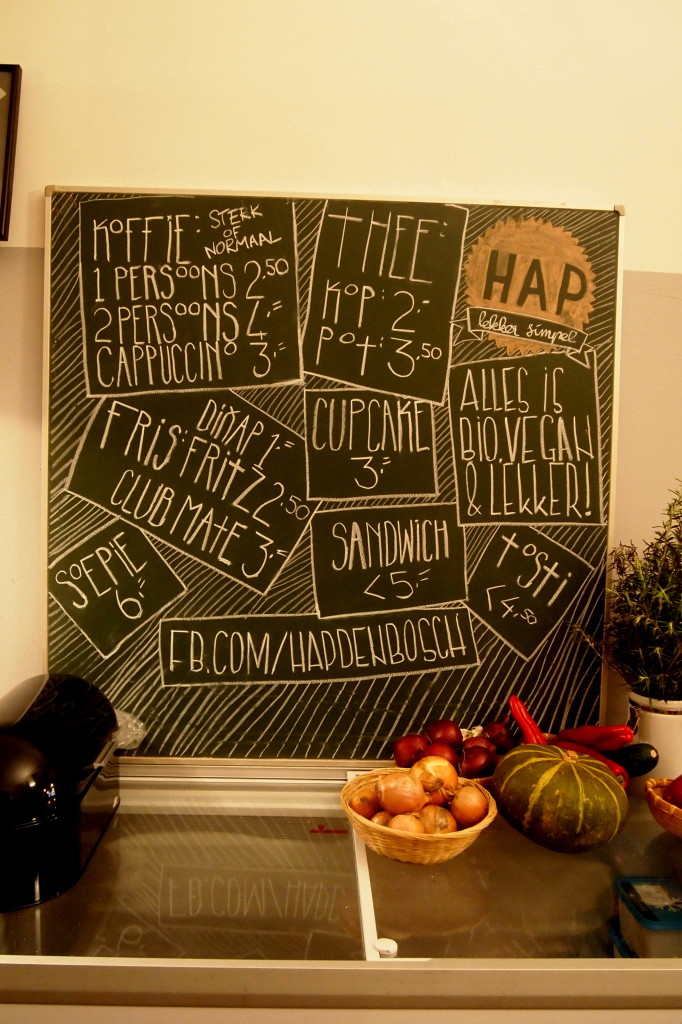 KOFFIE: STERK
OF
NORMAAL
1 PERSOONS 2.50
2 PERSOONS 4.=
CAPPUCCINO 3.=
THEE:
KOP: 2.-
POT: 3.50
HAP
lekker simpel
ALLES IS
BIO, VEGAN
& LEKKER!
DIXAP 1.=
FRIS: FRITZ 2.50
CLUB MATE 3.=
CUPCAKE
3.=
SOEPIE
6.=
SANDWICH
<5.=
TOSTI
<4.50
FB.COM/HAPDENBOSCH